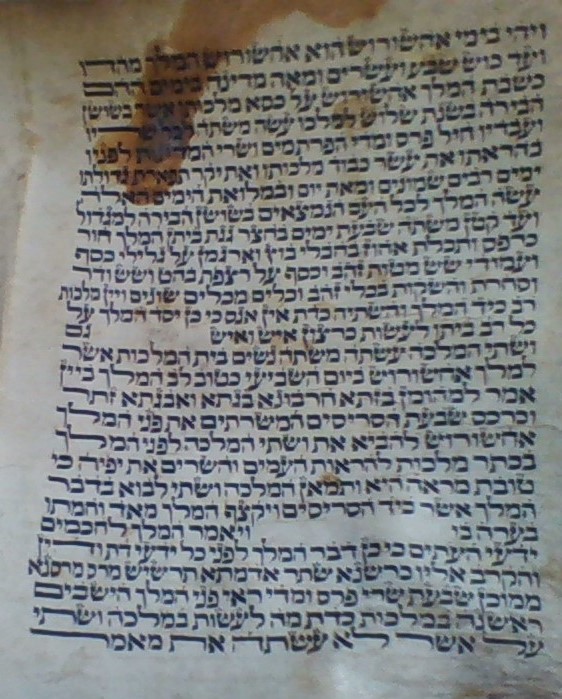 ויהי בימי אחשורוש הוא אחשורוש המלך מהדו
ועד כוש שבע ועשרים ומאה מדינה בימים ההם
כשבת המלך אחשורוש על כסא מלכותו אשר בשושן
הבירה בשנת שלוש למלכו עשה משתה לכל שריו
ועבדיו חיל פרס ומדי הפרתמים ושרי המדינות לפניו
בהראתו את עשר כבוד מלכותו ואת יקר תפארת גדולתו
ימים רבים שמונים ומאת יום ובמלואת הימים האלה
עשה המלך לכל העם הנמצאים בשושן הבירה למגדול
ועד קטן משתה שבעת ימים בחצר גנת ביתן המלך חור
כרפס ותכלת אחוז בחבלי בוץ וארגמן על גלילי כסף
ועמודי שש מטות זהב וכסף על רצפת בהט ושש ודר
וסחרת והשקות בכלי זהב וכלים מכלים שונים ויין מלכות
רב כיד המלך והשתיה כדת אין אנס כי כן יסד המלך על
כל רב ביתו לעשות כרצון איש ואיש גם
ושתי המלכה עשתה משתה נשים בית המלכות אשר
למלך אחשורוש ביום השביעי כטוב לב המלך ביין
אמר למהומן בזתא חרבונא בגתא ואבגתא זתר
וכרכס שבעת הסריסים המשרתים את פני המלך
אחשורוש להביא את ושתי המלכה לפני המלך
בכתר מלכות להראות העמים והשרים את יפיה כי
טובת מראה היא ותמאן המלכה ושתי לבוא בדבר
המלך אשר ביד הסריסים ויקצף המלך מאד וחמתו
בערה בו ויאמר המלך לחכמים
ידעי העתים כי כן דבר המלך לפני כל ידעי דת ודין
והקרב אליו כרשנא שתר אדמתא תרשיש מרס מרסנא
ממוכן שבעת שרי פרס ומדי ראי פני המלך הישבים
ראשנה במלכות כדת מה לעשות במלכה ושתי
על אשר לא עשתה את מאמר